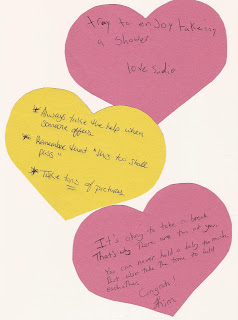 try to enjoy taking
a shower
love Jodie
* Always take the help when
someone offers
* Remember that "this too shall
pass"
* Take tons of pictures
It's okay to take a break
That's why there are two of you.
You can never hold a baby too much
But also take the time to hold
each other.
Congrats!
Kim